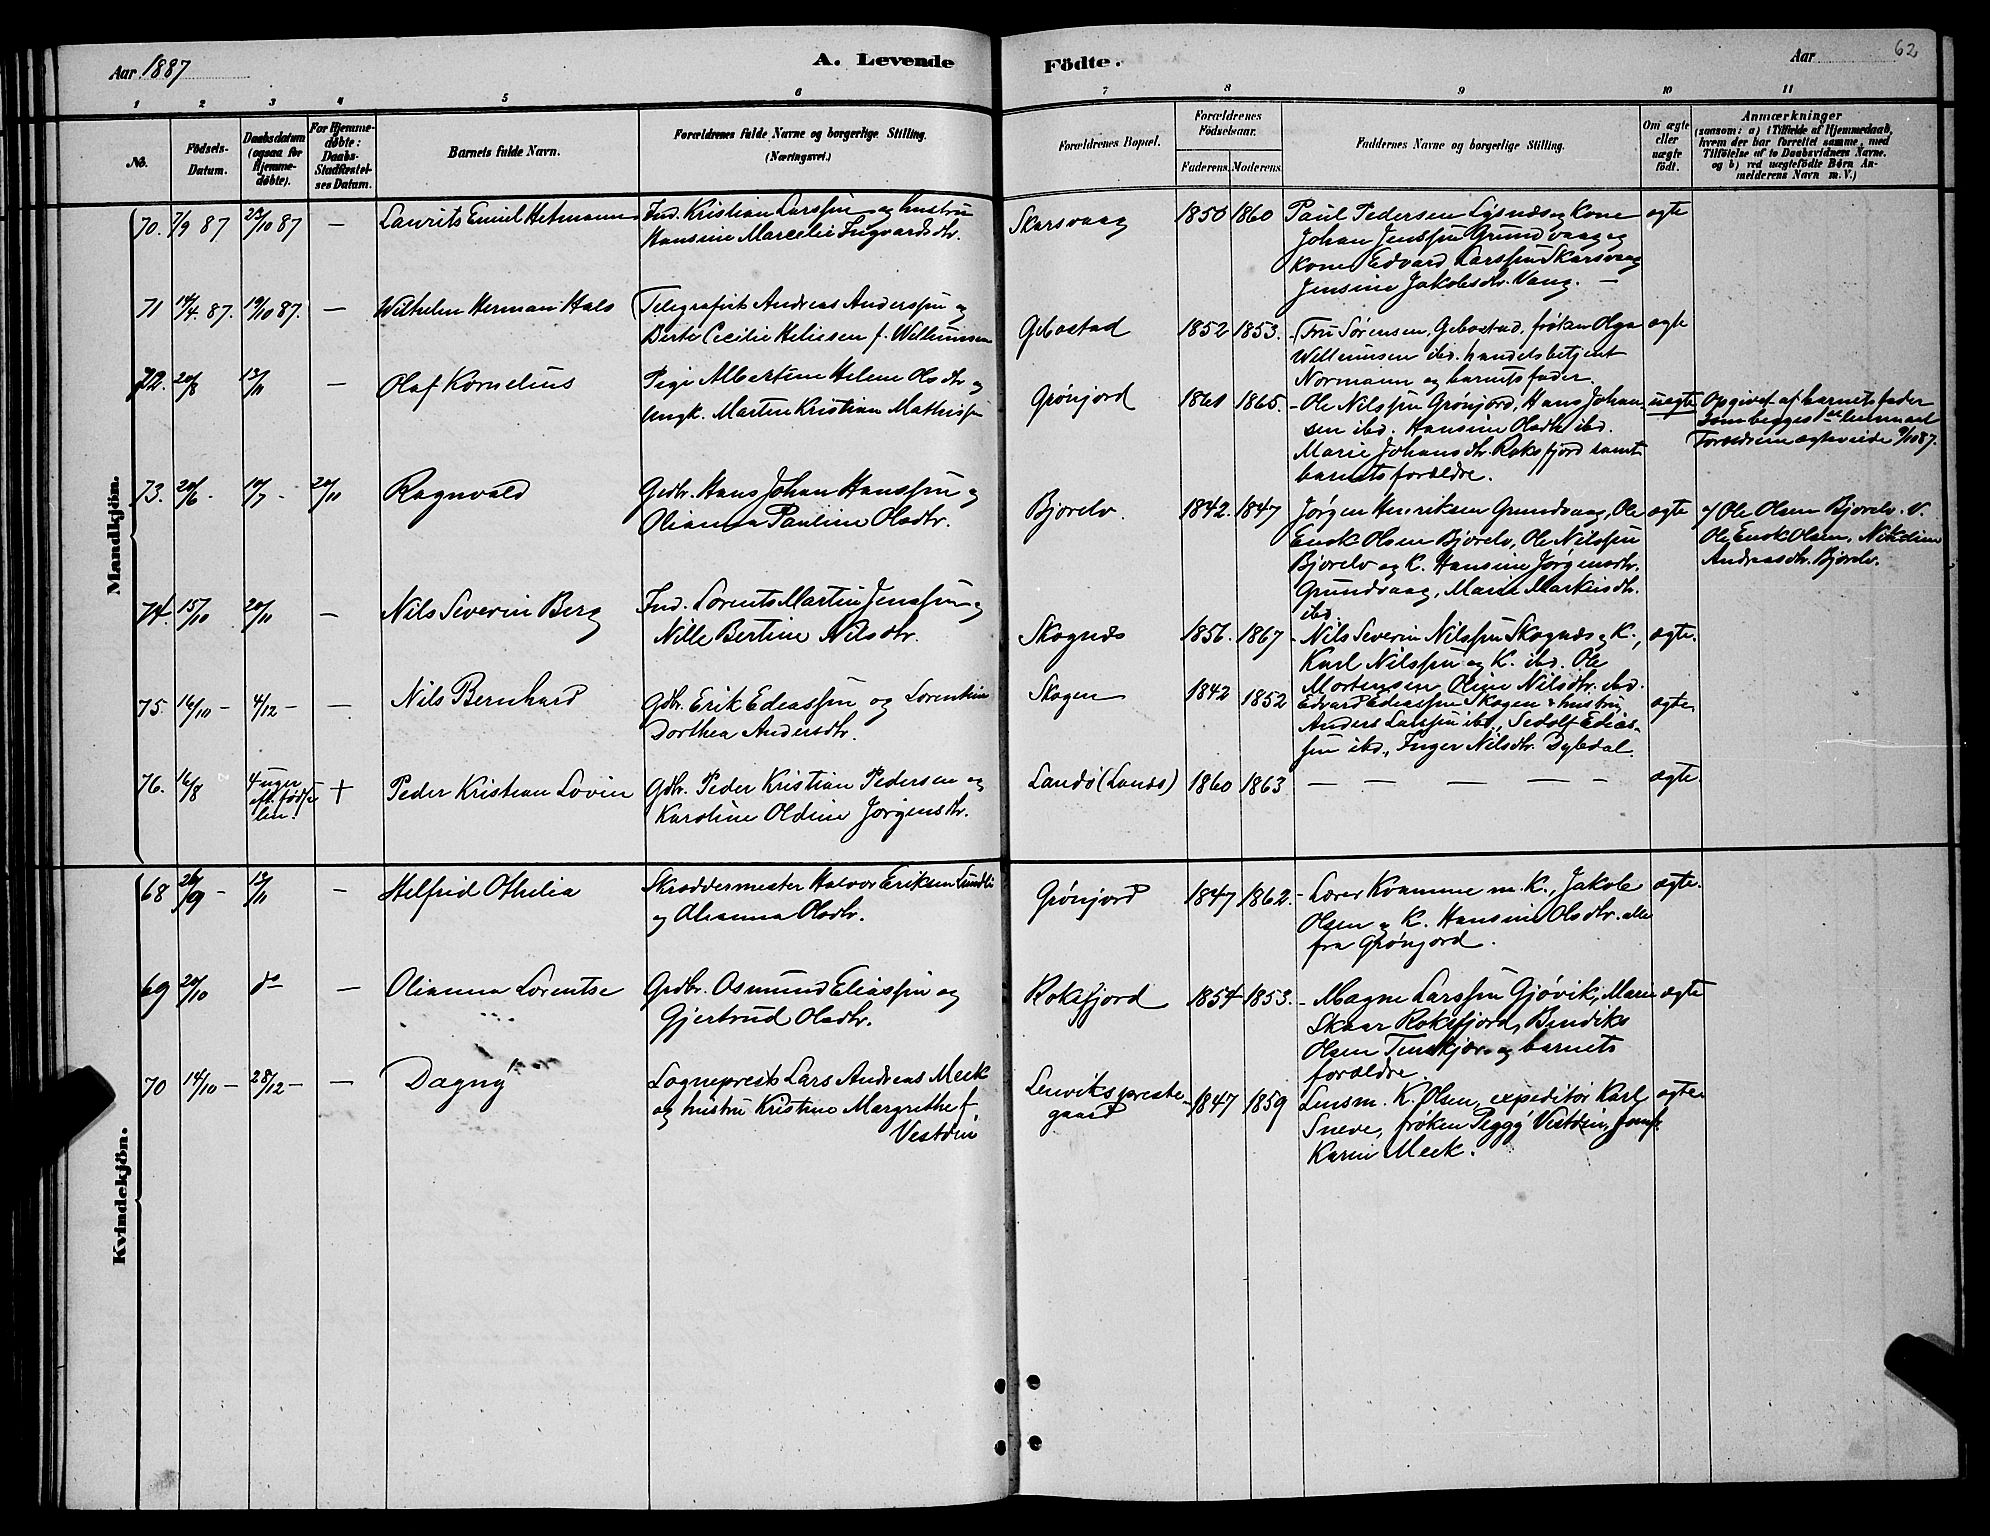 Aar 1887
A. Levende
Födte.
Aar
62
1 2 3 4 5 6 7 8 9 10 11
No.
Födsels-
Datum.
Daabsdatum
(ogsaa for
Hjemme-
döbte).
For Hjemme-
döbte:
Daabs-
Stadfæstel-
ses Datum.
Barnets fulde Navn.
Forældrenes fulde Navne og borgerlige Stilling.
(Næringsvei.)
Forældrenes Bopæl.
Forældrenes
Födselsaar.
Faderens. Moderens.
Faddernes Navne og borgerlige Stilling.
Om ægte
eller
uægte
födt.
Anmærkninger
(saasom: a) i Tilfælde af Hjemmedaab,
hvem der har forrettet samme, med
Tilföielse af to Daabsvidners Navne.
og b) ved uægtefödte Börn An-
melderens Navn m. V.)
Mandkjön.
70. 7/9 87 23/10 87 — Laurits Emil Hetmann Ind. Kristian Larssen og hustru
Hansine Marcelie Ingvardsdtr.
Skarsvaag 1850 1860 Paul Pedersen Lysnæs og Kone
Johan Jenssen Grundvaag og
Kone Edvard Larssen Skarsvaag
Jensine Jakobsdtr. Vang. —
ægte
71 14/4. 87. 19/10 87. — Wilhelm Herman Hals Telegrafist Andreas Anderssen og
Berte Cecilie Heliesen f. Willumsen
Gibostad 1852 1853. - Fru Sørensen, Gibostad, frøken Olga
Willumsen ibd. handelsbetjent
Normann og barnets fader.
ægte
72. 20/8 13/11 — Olaf Kornelius Pige Albertine Helene Olsdtr og
Ungk. Martin Kristian Mathissen
Grønjord 1861 1865. - Ole Nilssen Grønjord, Hans Johan-
sen ibd. Hansine Olsdtr ibd.
Marie Johansdtr. Roksfjord samt
barnets forældre.
uægte Opgivet af barnets fader
som begges 1ste leiermaal
Forældrene ægteviede 9/10 87.
73. 20/6 - 10/7 - 20/11 Ragnvald Grdbr. Hans Johan Hanssen og
Olianna Pauline Olsdtr.
Bjorelv. 1842. 1847 Jørgen Henriksen Grundvaag, Ole
Enok Olsen Bjorelv, Ole Nilssen
Bjorelv og K. Hansine Jørgensdtr.
Grundvaag, Maria Markusdtr.
ibd.
ægte af Ole Olsen Bjorelv. V.
Ole Enok Olsen, Nikoline
Andreasdtr. Bjorelv.
74. 15/10 20/11 — Nils Severin Berg Ind. Lorents Martin Jenssen og
Nille Bertine Nilsdtr.
Skognæs 1856. 1867 - Nils Severin Nilssen Skognæs og K.,
Karl Nilssen og K. ibd. Ole
Mortensen, Oline Nilsdtr. ibd.
ægte.
75. 16/10 - 4/12 - — Nils Bernhard Gdbr. Erik Ediassen og Lorentine
Dorthea Andersdtr.
Skogen 1842 1852 Edvard Ediassen Skogen & hustru,
Anders Larssen ibd, Sedolf Edias-
sen ibd., Inger Nilsdtr. Dybdal.
ægte
76. 16/8 4 uger
eft. fødse
len.
+ Peder Kristian Lovin Gdbr. Peder Kristian Pedersen og
Karoline Oldine Jørgensdtr.
Landø (Lands) 1860 1863 — — — — — ægte
Kvindekjön.
68 26/9 - 13/11 — Helfrid Othilia Skræddermester Halvor Eriksen Sundli
og Olianna Olsdtr.
Grønjord 1847 1862. - Lærer Kvamme m. K., Jakob
Olsen og K. Hansine Olsdtr. alle
fra Grønjord.
ægte.
69 20/10 do — Olianna Lorentse Grdbr. Osmund Eliassen og
Gjertrud Olsdtr.
Roksfjord 1854 1853. - Magne Larssen Gjøvik, Marie
Skaar Roksfjord, Bendiks
Olsen Tenskjær og barnets
forældre.
ægte
70 14/10 - 28/12 - — Dagny Sogneprest Lars Andreas Meek
og hustru Kristine Margrethe f.
Vestdin
Lenviks preste-
gaard
1847 1859 Lensm. K. Olsen, expeditør Karl
Sneve, frøken Peggy Vestdin, Jomf.
Karin Meek.
ægte